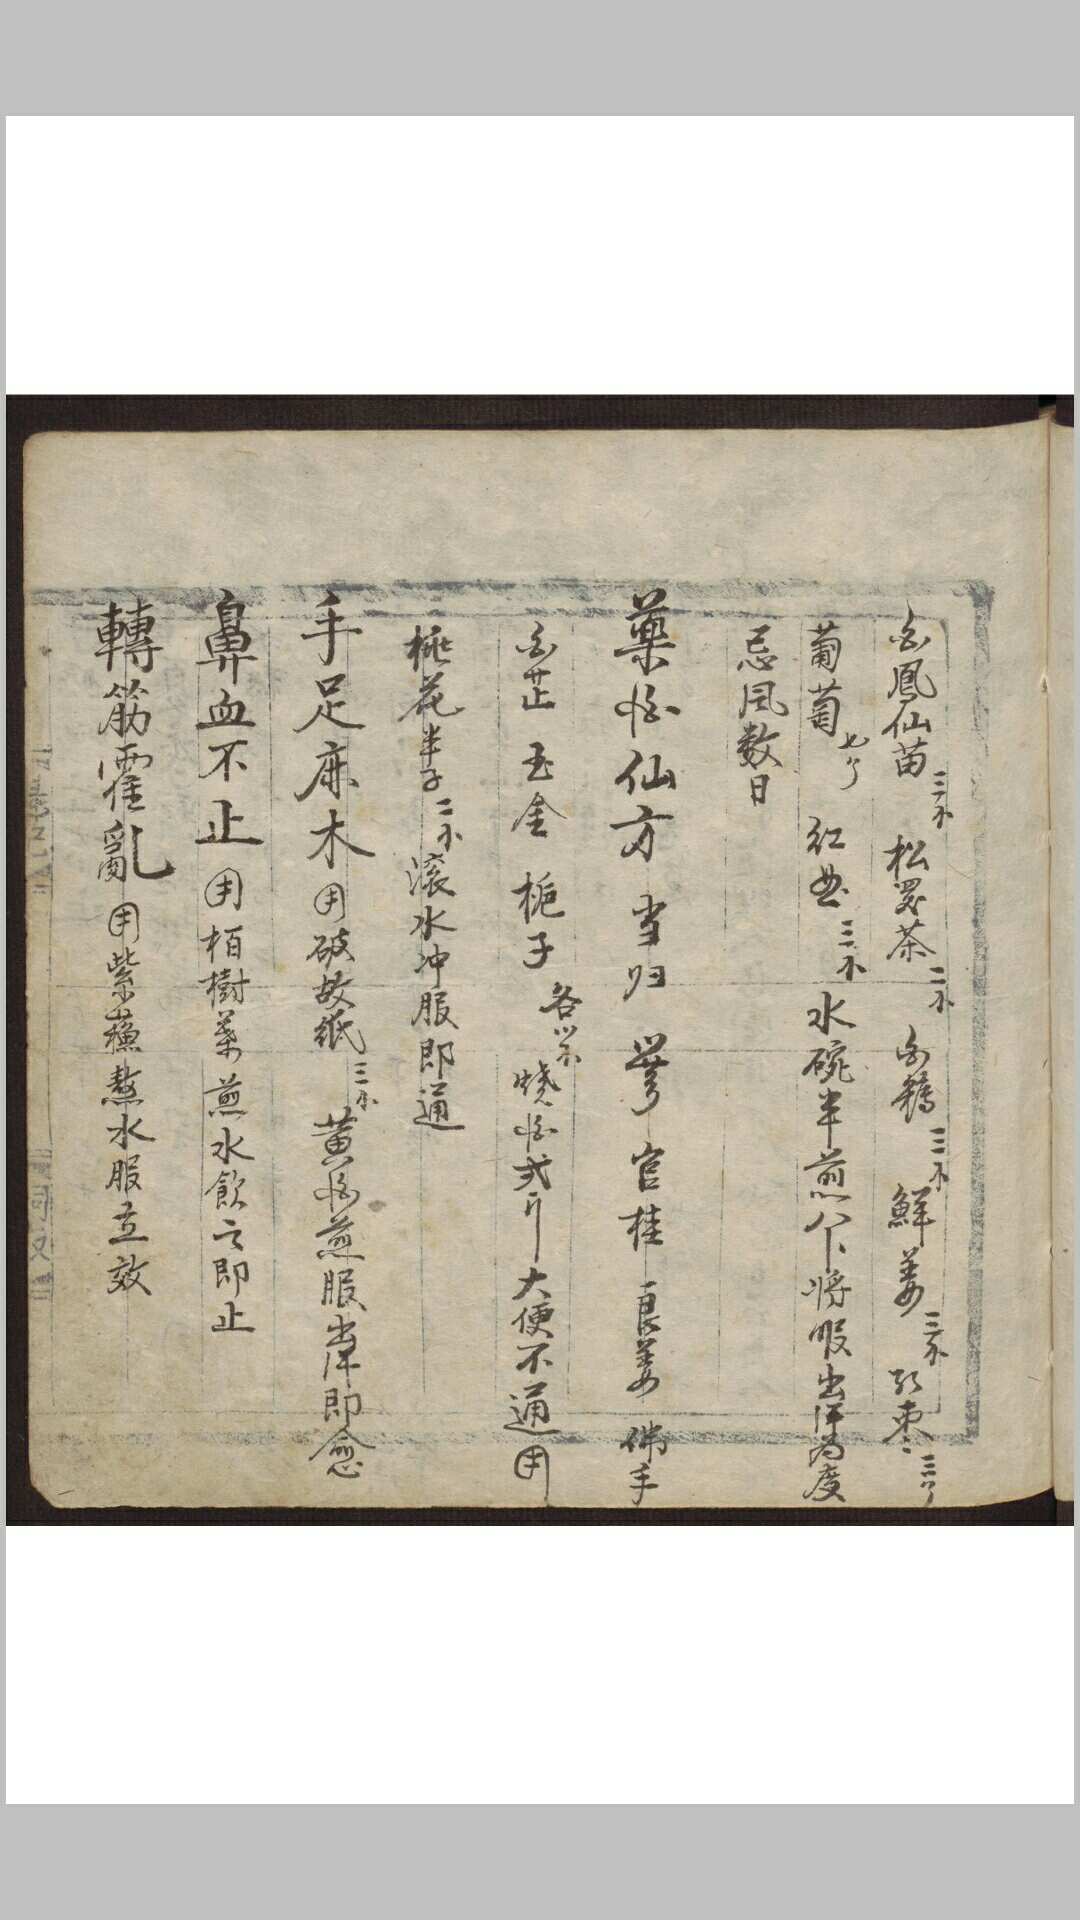 白鳳仙苗 三 松罗茶 二 三 鮮姜 三 红枣 三个
葡萄 七个 红曲 三 水碗半煎八 将服出汗为度
忌風数日
藥酒仙方 当归 官桂 良姜 佛手
白芷 玉金 栀子 各 烧酒弍斤 大便不通 用
桃花 半子 二 滚水冲服即通
手足麻木 用 破故紙 三 黄酒煎服出汗即愈
鼻血不止 用 栢樹葉煎水飲之即止
轉筋霍亂 用 紫蘓熬水服立效